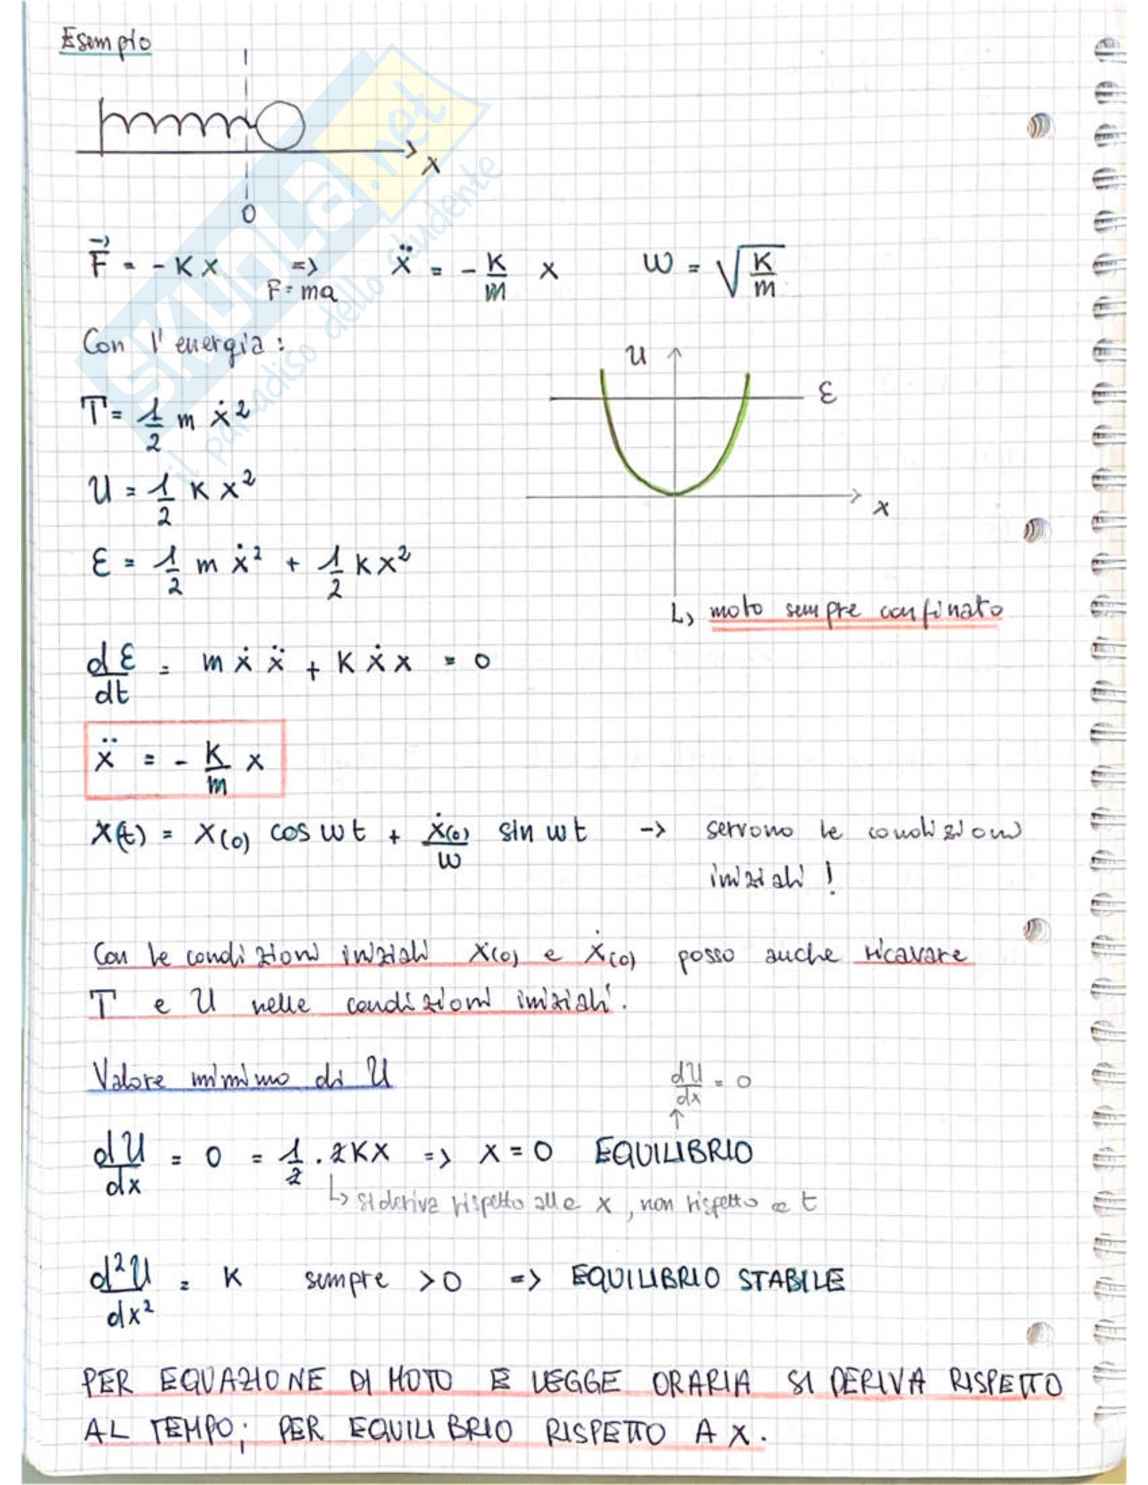 Esempio
x
0
F⃗ = - K x => F = ma ẍ = - K/m x ω = √K/m
Con l'energia:
U
ε
T = 1/2 m ẋ²
U = 1/2 K x²
x
ε = 1/2 m ẋ² + 1/2 K x²
↳ moto sempre confinato
dε/dt = m ẋ ẍ + K ẋ x = 0
ẍ = - K/m x
x(t) = x(0) cos ωt + ẋ(0)/ω sin ωt -> servono le condizioni
iniziali!
Con le condizioni iniziali x(0) e ẋ(0) posso anche ricavare
T e U nelle condizioni iniziali.
Valore minimo di U
dU/dx = 0
↑
dU/dx = 0 = 1/2 · 2Kx => x = 0 EQUILIBRIO
↳ si deriva rispetto alle x, non rispetto a t
d²U/dx² = K sempre > 0 => EQUILIBRIO STABILE
PER EQUAZIONE DI MOTO E LEGGE ORARIA SI DERIVA RISPETTO
AL TEMPO; PER EQUILIBRIO RISPETTO A X.
SKUOLA.net
il paradiso dello studente